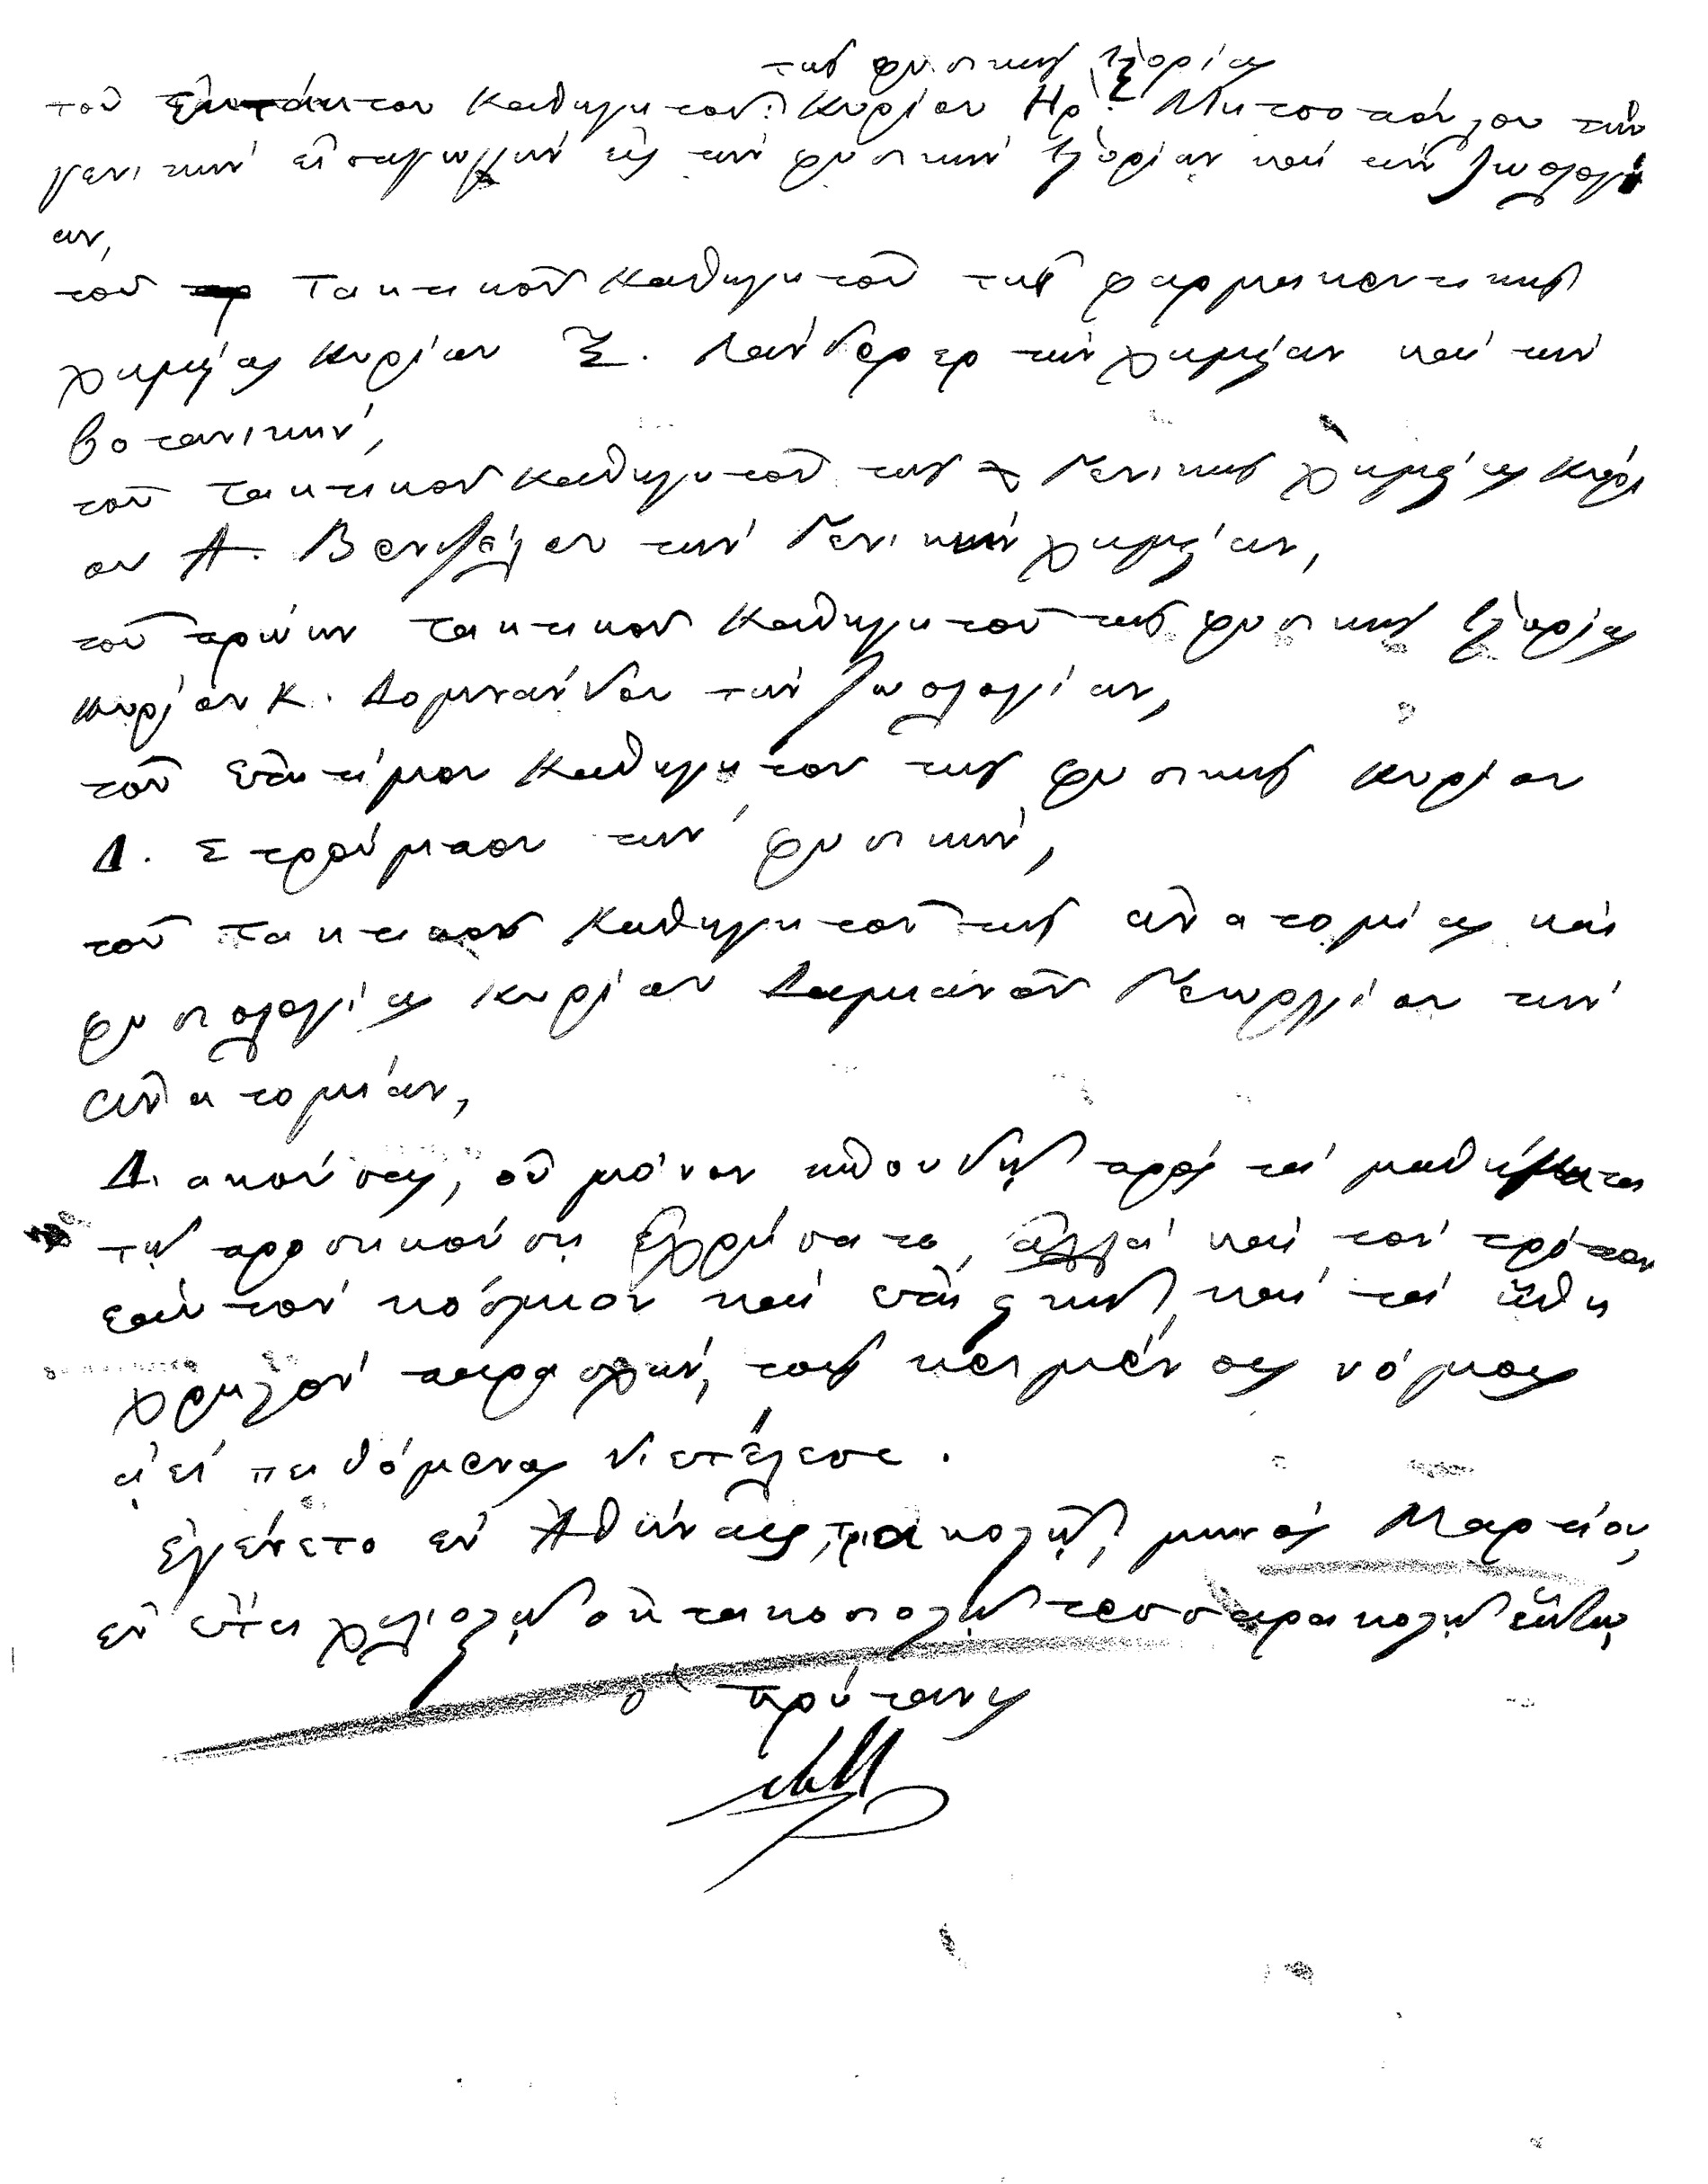 της φυσικης ἱστορίας
τοῦ ἐκτάκτου καθηγητοῦ Κυρίου Ηρ. Μητσοπούλου τὴν
γενικὴν εἰσαγωγὴν εἰς τὴν φυσικὴν ἱστορίαν καὶ τὴν ζωολογί
αν,
τοῦ τακτικοῦ καθηγητοῦ τῆς φαρμακευτικῆς
χημείας Κυρίου Ξ. Λάνδερερ τὴν χημείαν καὶ τὴν
βοτανικὴν,
τοῦ τακτικοῦ καθηγητοῦ της Γενικης χημείας Κυρί
ου Α. Βενιζέλου τὴν Γενικὴν χημείαν,
τοῦ πρώην τακτικοῦ καθηγητοῦ της φυσικης ἱστορίας
Κυρίου Κ. Δομνάνδου τὴν ζωολογίαν,
τοῦ ἐπιτίμου καθηγητου της φυσικης κυρίου
Δ. Στρούμπου τὴν φυσικὴν,
τοῦ τακτικοῦ καθηγητοῦ της ἀνατομίας καὶ
φυσιολογίας Κυρίου Δαμιανοῦ Γεωργίου τὴν
ἀνατομίαν,
Διακούσας, οὐ μόνον σπουδῇ πρὸς τὰ μαθήματα
τῇ προσηκούσῃ ἐχρήσατο, ἀλλὰ καὶ τὸν τρόπον
ἑαυτὸν κόσμιον καὶ ἐπιεικῆ, καὶ τὰ ἤθη
χρηστὸν παρασχὼν, τοῖς κειμένοις νόμοις
ἀεὶ πειθόμενος διετέλεσε.
ἐγένετο ἐν Ἀθήναις, τριακοστῇ, μηνὸς Μαρτίου,
ἐν ἔτει χιλιοστῷ ὀκτακοσιοστῷ τεσσαρακοστῷ ἕκτῳ,
ὁ πρύτανις